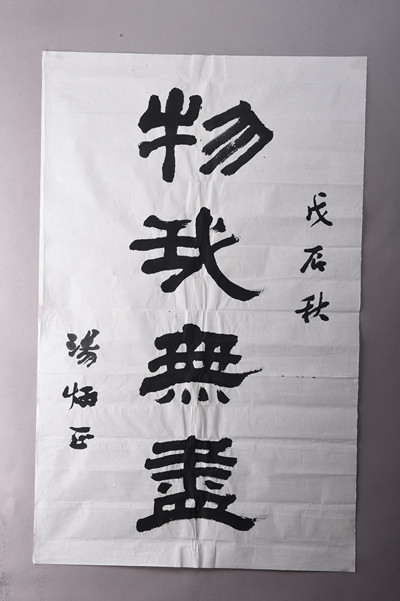 戊辰秋
物我無盡
湯炳正